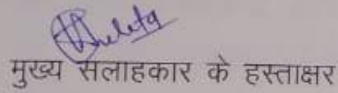 मुख्य सलाहकार के हस्ताक्षर